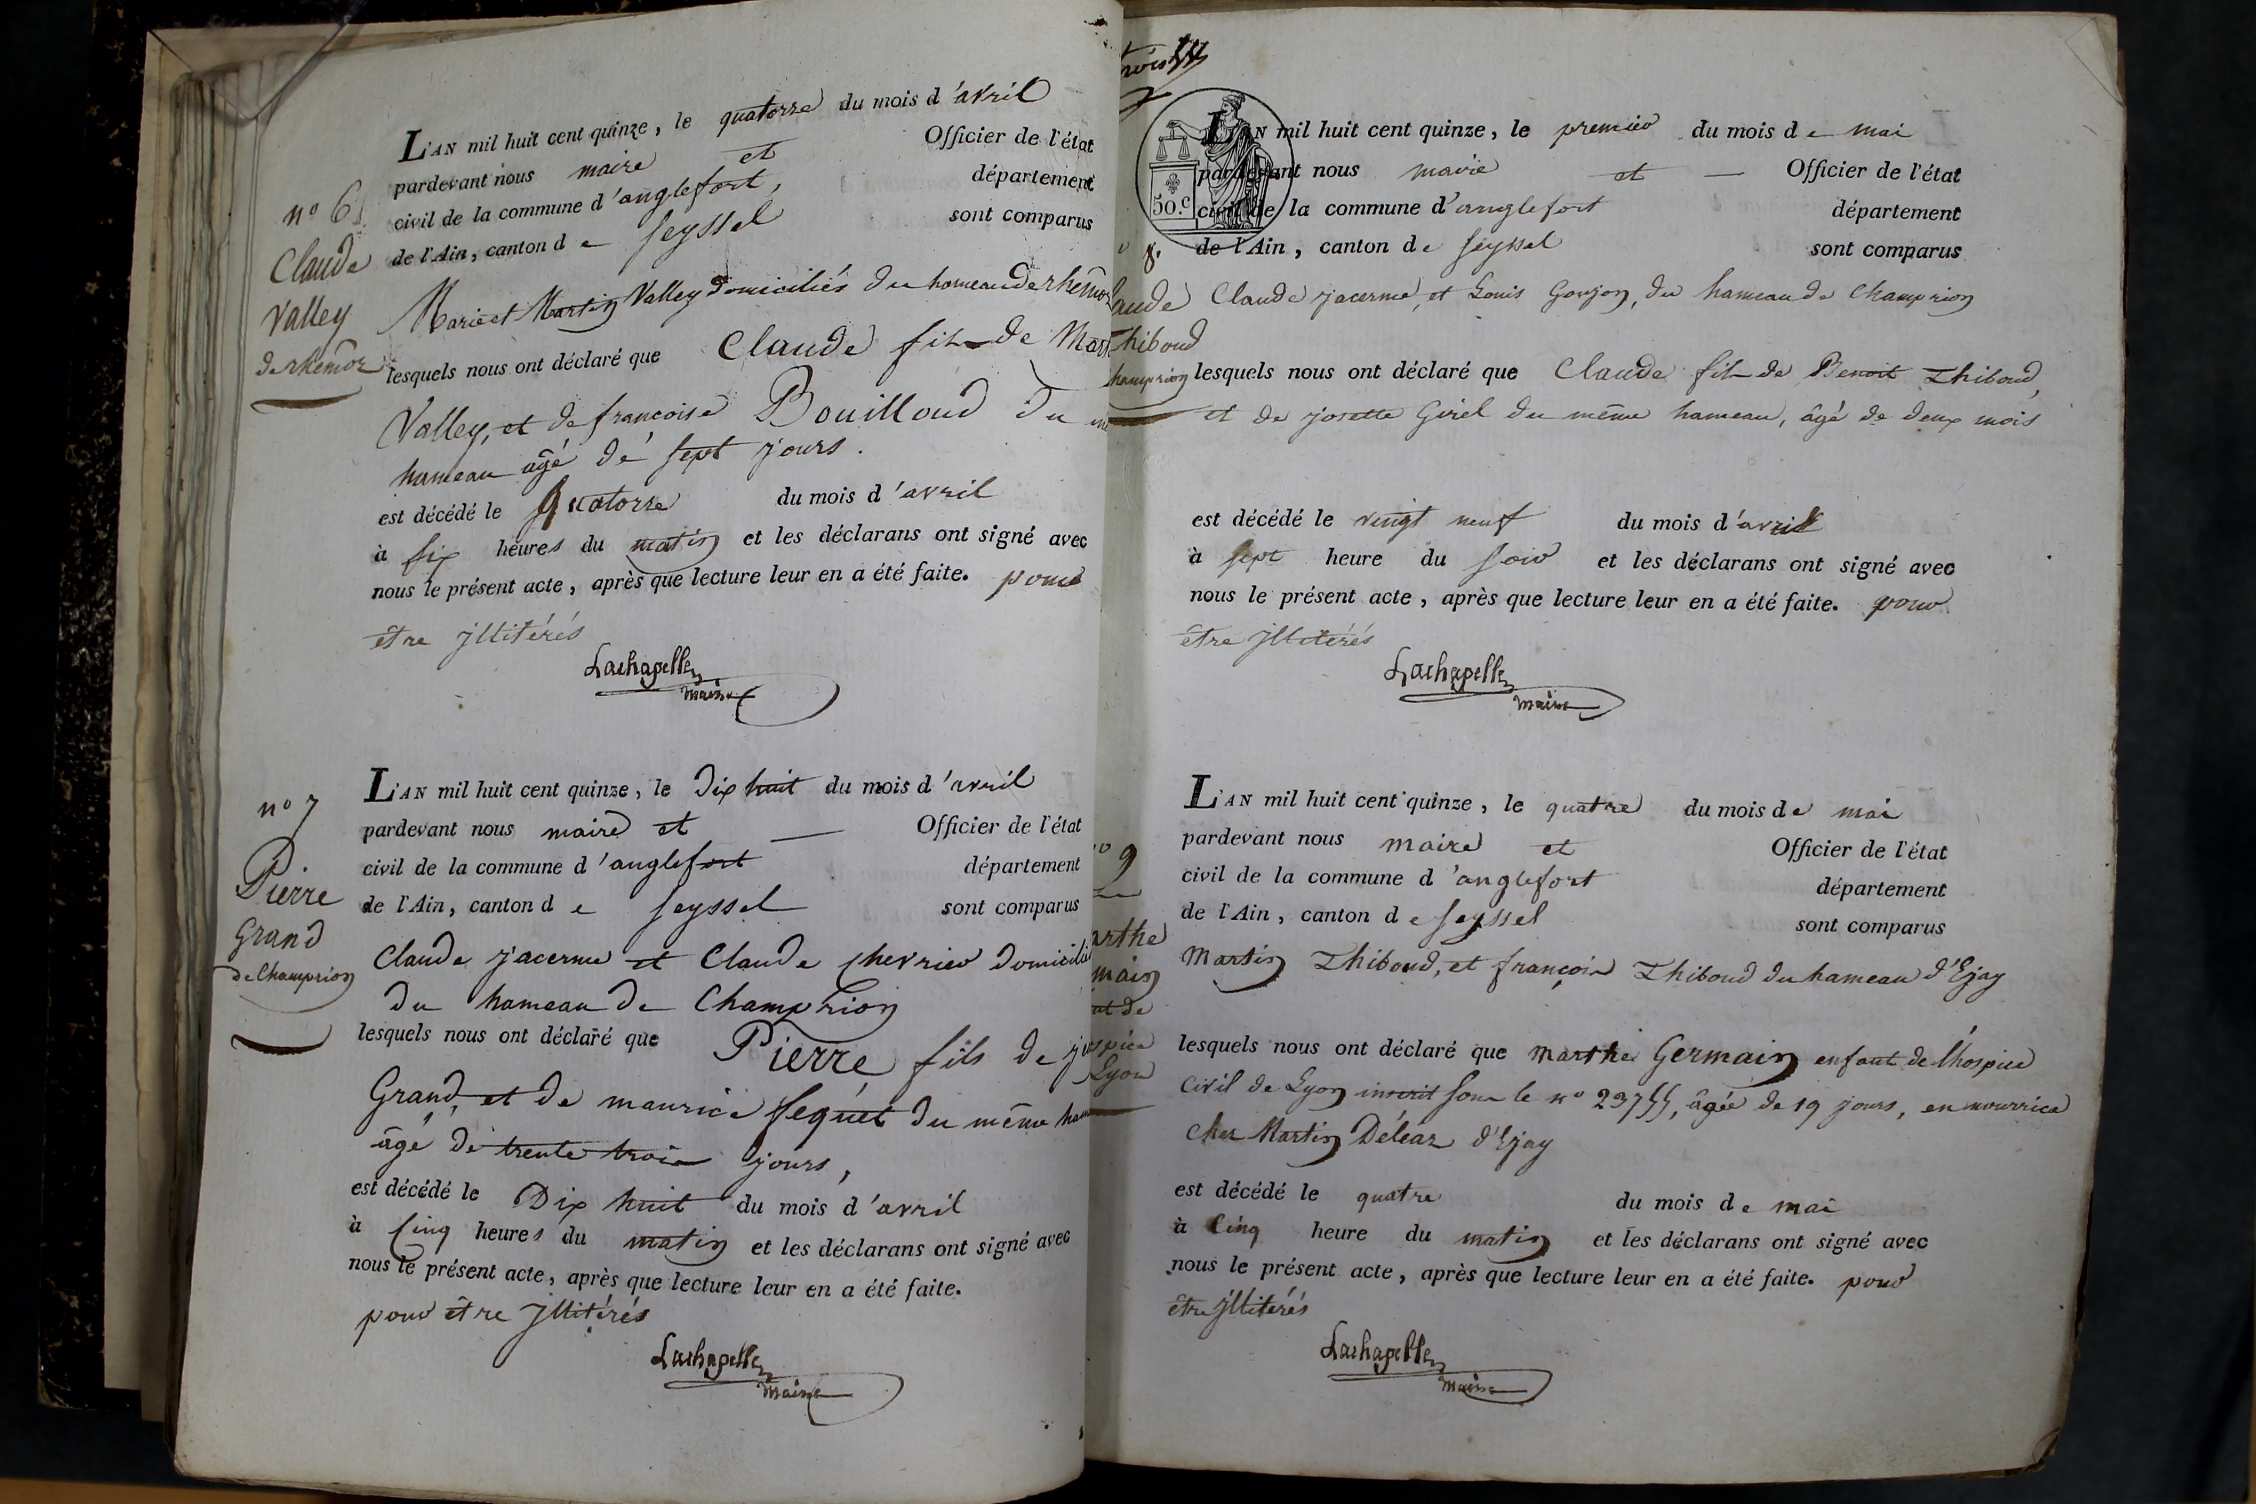 nº 6
Claude
Valley
de rhemoz
L'AN mil huit cent quinze, le quatorze du mois d'avril
pardevant nous maire et Officier de l'état
civil de la commune d'anglefort, département
de l'Ain, canton de Seyssel sont comparus
Marie et Martin Valley domiciliés du hameau de rhemoz
lesquels nous ont déclaré que Claude fils de
Valley, et de francoise Bouilloud du
hameau âgé de sept jours.
est décédé le Quatorze du mois d'avril
à six heures du matin et les déclarans ont signé avec
nous le présent acte, après que lecture leur en a été faite. pour
être jllitérés
Lachapelle
maire
nº 7
Pierre
Grand
de Champrion
L'AN mil huit cent quinze, le dix huit du mois d'avril
pardevant nous maire et — Officier de l'état
civil de la commune d'anglefort département
de l'Ain, canton de Seyssel sont comparus
Claude jacerme et Claude chevrier
du hameau de Champrion
lesquels nous ont déclaré que Pierre fils de
Grand, et de maurice Sequet du même
âgé de trente trois jours,
est décédé le Dix huit du mois d'avril
à Cinq heures du matin et les déclarans ont signé avec
nous le présent acte, après que lecture leur en a été faite.
pour être jllitérés
Lachapelle
maire
50.c
8.
aude
Thiboud
hamprion
L'AN mil huit cent quinze, le premier du mois de mai
pardevant nous maire et — Officier de l'état
civil de la commune d'anglefort département
de l'Ain, canton de Seyssel sont comparus
Claude jacerme, et Louis Goujon, du hameau de Champrion
lesquels nous ont déclaré que Claude fils de Benoit Thiboud,
et de josette Girel du même hameau, âgé de deux mois
est décédé le vingt neuf du mois d'avril
à sept heure du soir et les déclarans ont signé avec
nous le présent acte, après que lecture leur en a été faite. pour
être jllitérés
Lachapelle
maire
9
arthe
main
nt de
spice
Lyon
L'AN mil huit cent quinze, le quatre du mois de mai
pardevant nous maire et Officier de l'état
civil de la commune d'anglefort département
de l'Ain, canton de Seyssel sont comparus
Martin Thiboud, et françois Thiboud du hameau d'Ejay
lesquels nous ont déclaré que marthe Germain enfant de l'hospice
Civil de Lyon inscrit sous le nº 23755, âgée de 19 jours, en nourrice
chez Martin Déléaz d'Ejay
est décédé le quatre du mois de mai
à Cinq heure du matin et les déclarans ont signé avec
nous le présent acte, après que lecture leur en a été faite. pour
être jllitérés
Lachapelle
maire